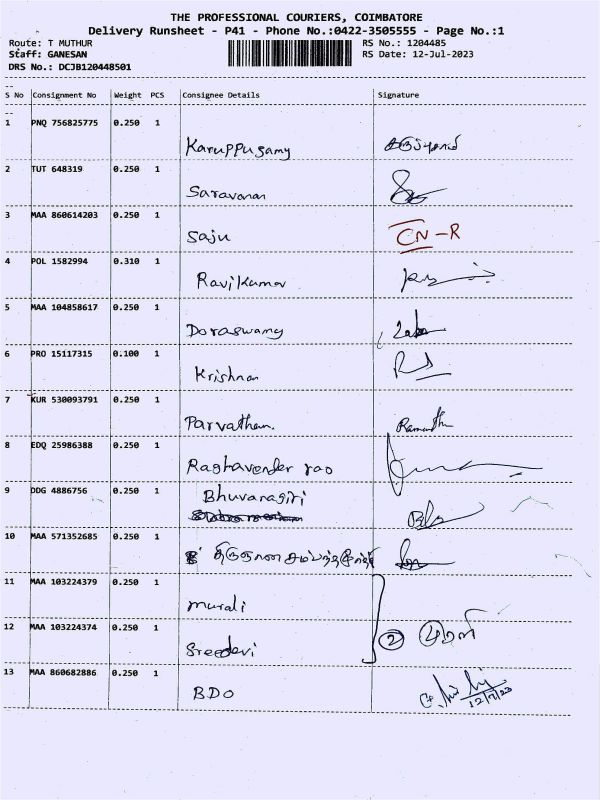 THE PROFESSIONAL COURIERS, COIMBATORE
Delivery Runsheet - P41 - Phone No.:0422-3505555 - Page No.:1
Route: T MUTHUR RS No.: 1204485
Staff: GANESAN RS Date: 12-Jul-2023
DRS No.: DCJB120448501
S No Consignment No Weight PCS Consignee Details Signature
1 PNQ 756825775 0.250 1
Karuppusamy
2 TUT 648319 0.250 1
Saravanan
3 MAA 860614203 0.250 1
Saju CN-R
4 POL 1582994 0.310 1
Ravikumar
5 MAA 104858617 0.250 1
Doraswamy
6 PRO 15117315 0.100 1
Krishnan
7 KUR 530093791 0.250 1
Parvatham.
8 EDQ 25986388 0.250 1
Raghavender rao
9 DDG 4886756 0.250 1
Bhuvanagiri
10 MAA 571352685 0.250 1
11 MAA 103224379 0.250 1
murali
12 MAA 103224374 0.250 1
Sreedevi 2 முரளி
13 MAA 860682886 0.250 1
BDO
12/7/23